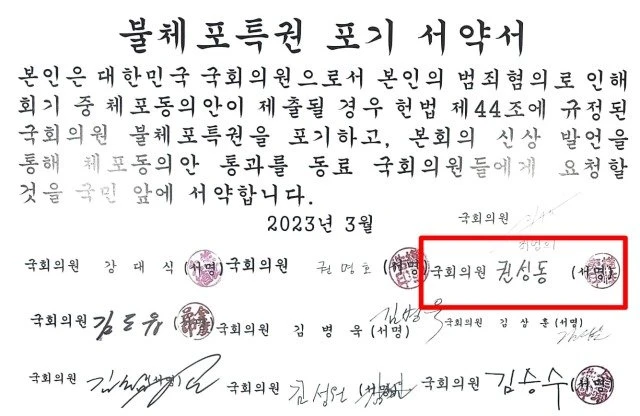 불체포특권 포기 서약서
본인은 대한민국 국회의원으로서 본인의 범죄혐의로 인해
회기 중 체포동의안이 제출될 경우 헌법 제44조에 규정된
국회의원 불체포특권을 포기하고, 본회의 신상 발언을
통해 체포동의안 통과를 동료 국회의원들에게 요청할
것을 국민 앞에 서약합니다.
2023년 3월
국회의원
국회의원 강대식 (서명) 국회의원 권명호 (서명) 국회의원 권성동 (서명)
국회의원 김도읍 (서명) 국회의원 김병욱 (서명) 김병욱 국회의원 김상훈 (서명)
국회의원 (서명) 국회의원 김성원 (서명) 국회의원 김승수 (서명)